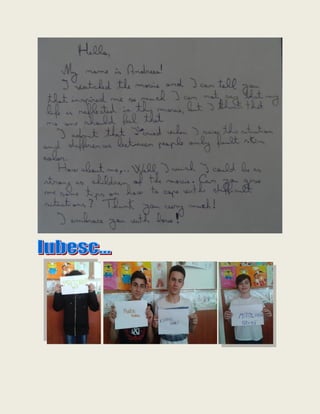 Hello,
My name is Andreea!
I watched the movie and I can tell you
that inspired me so much I can not say that my
life is reflected in this movie, but I think that
no one should feel that
I admit that I cried when I saw the situation
and difference between people only fault skin
color.
How about me... Well, I wish I could be as
strong as children of the movie. Can you give
me some tips on how to cope with difficult
situations? Thank you very much!
I embrace you with love!
Iubesc...